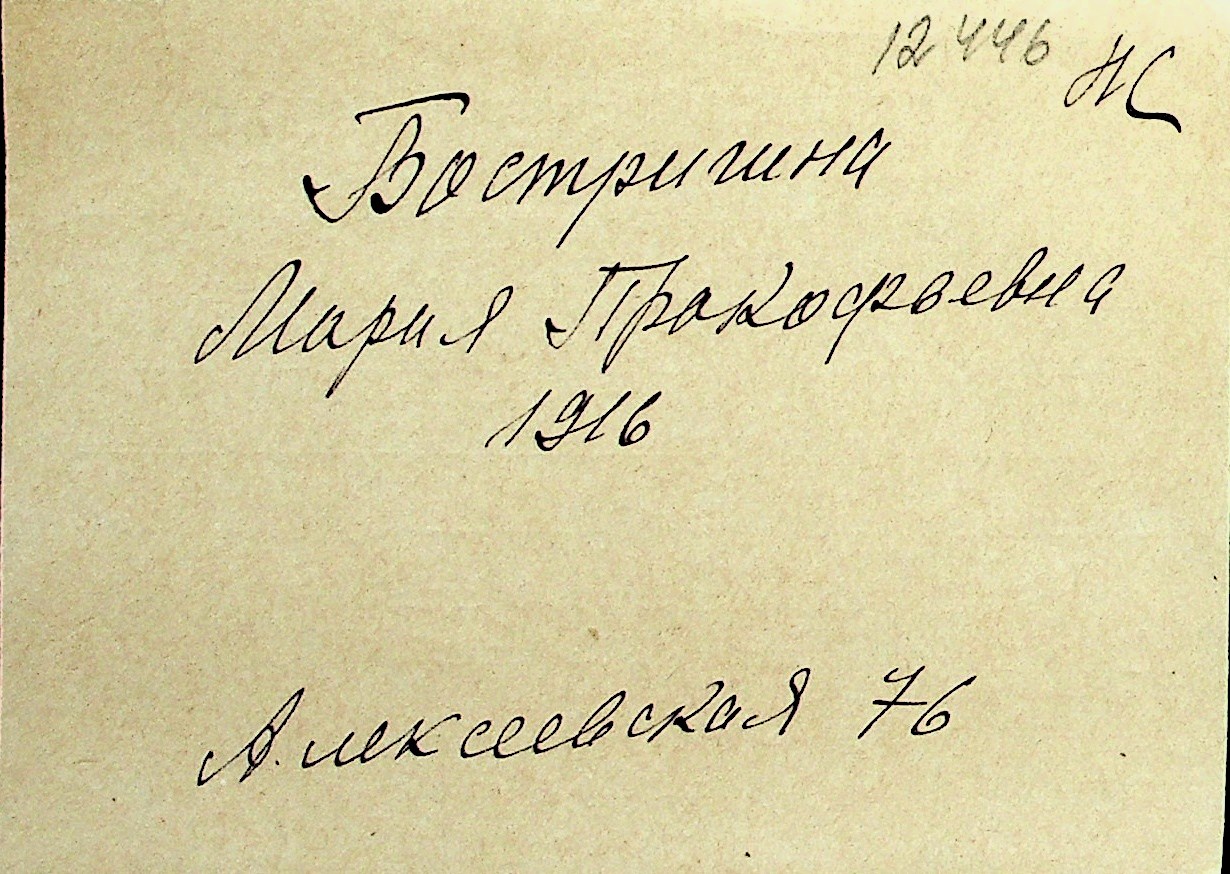 12446 НС
Востригина
Мария Прокофьевна
1916
Алексеевская 76